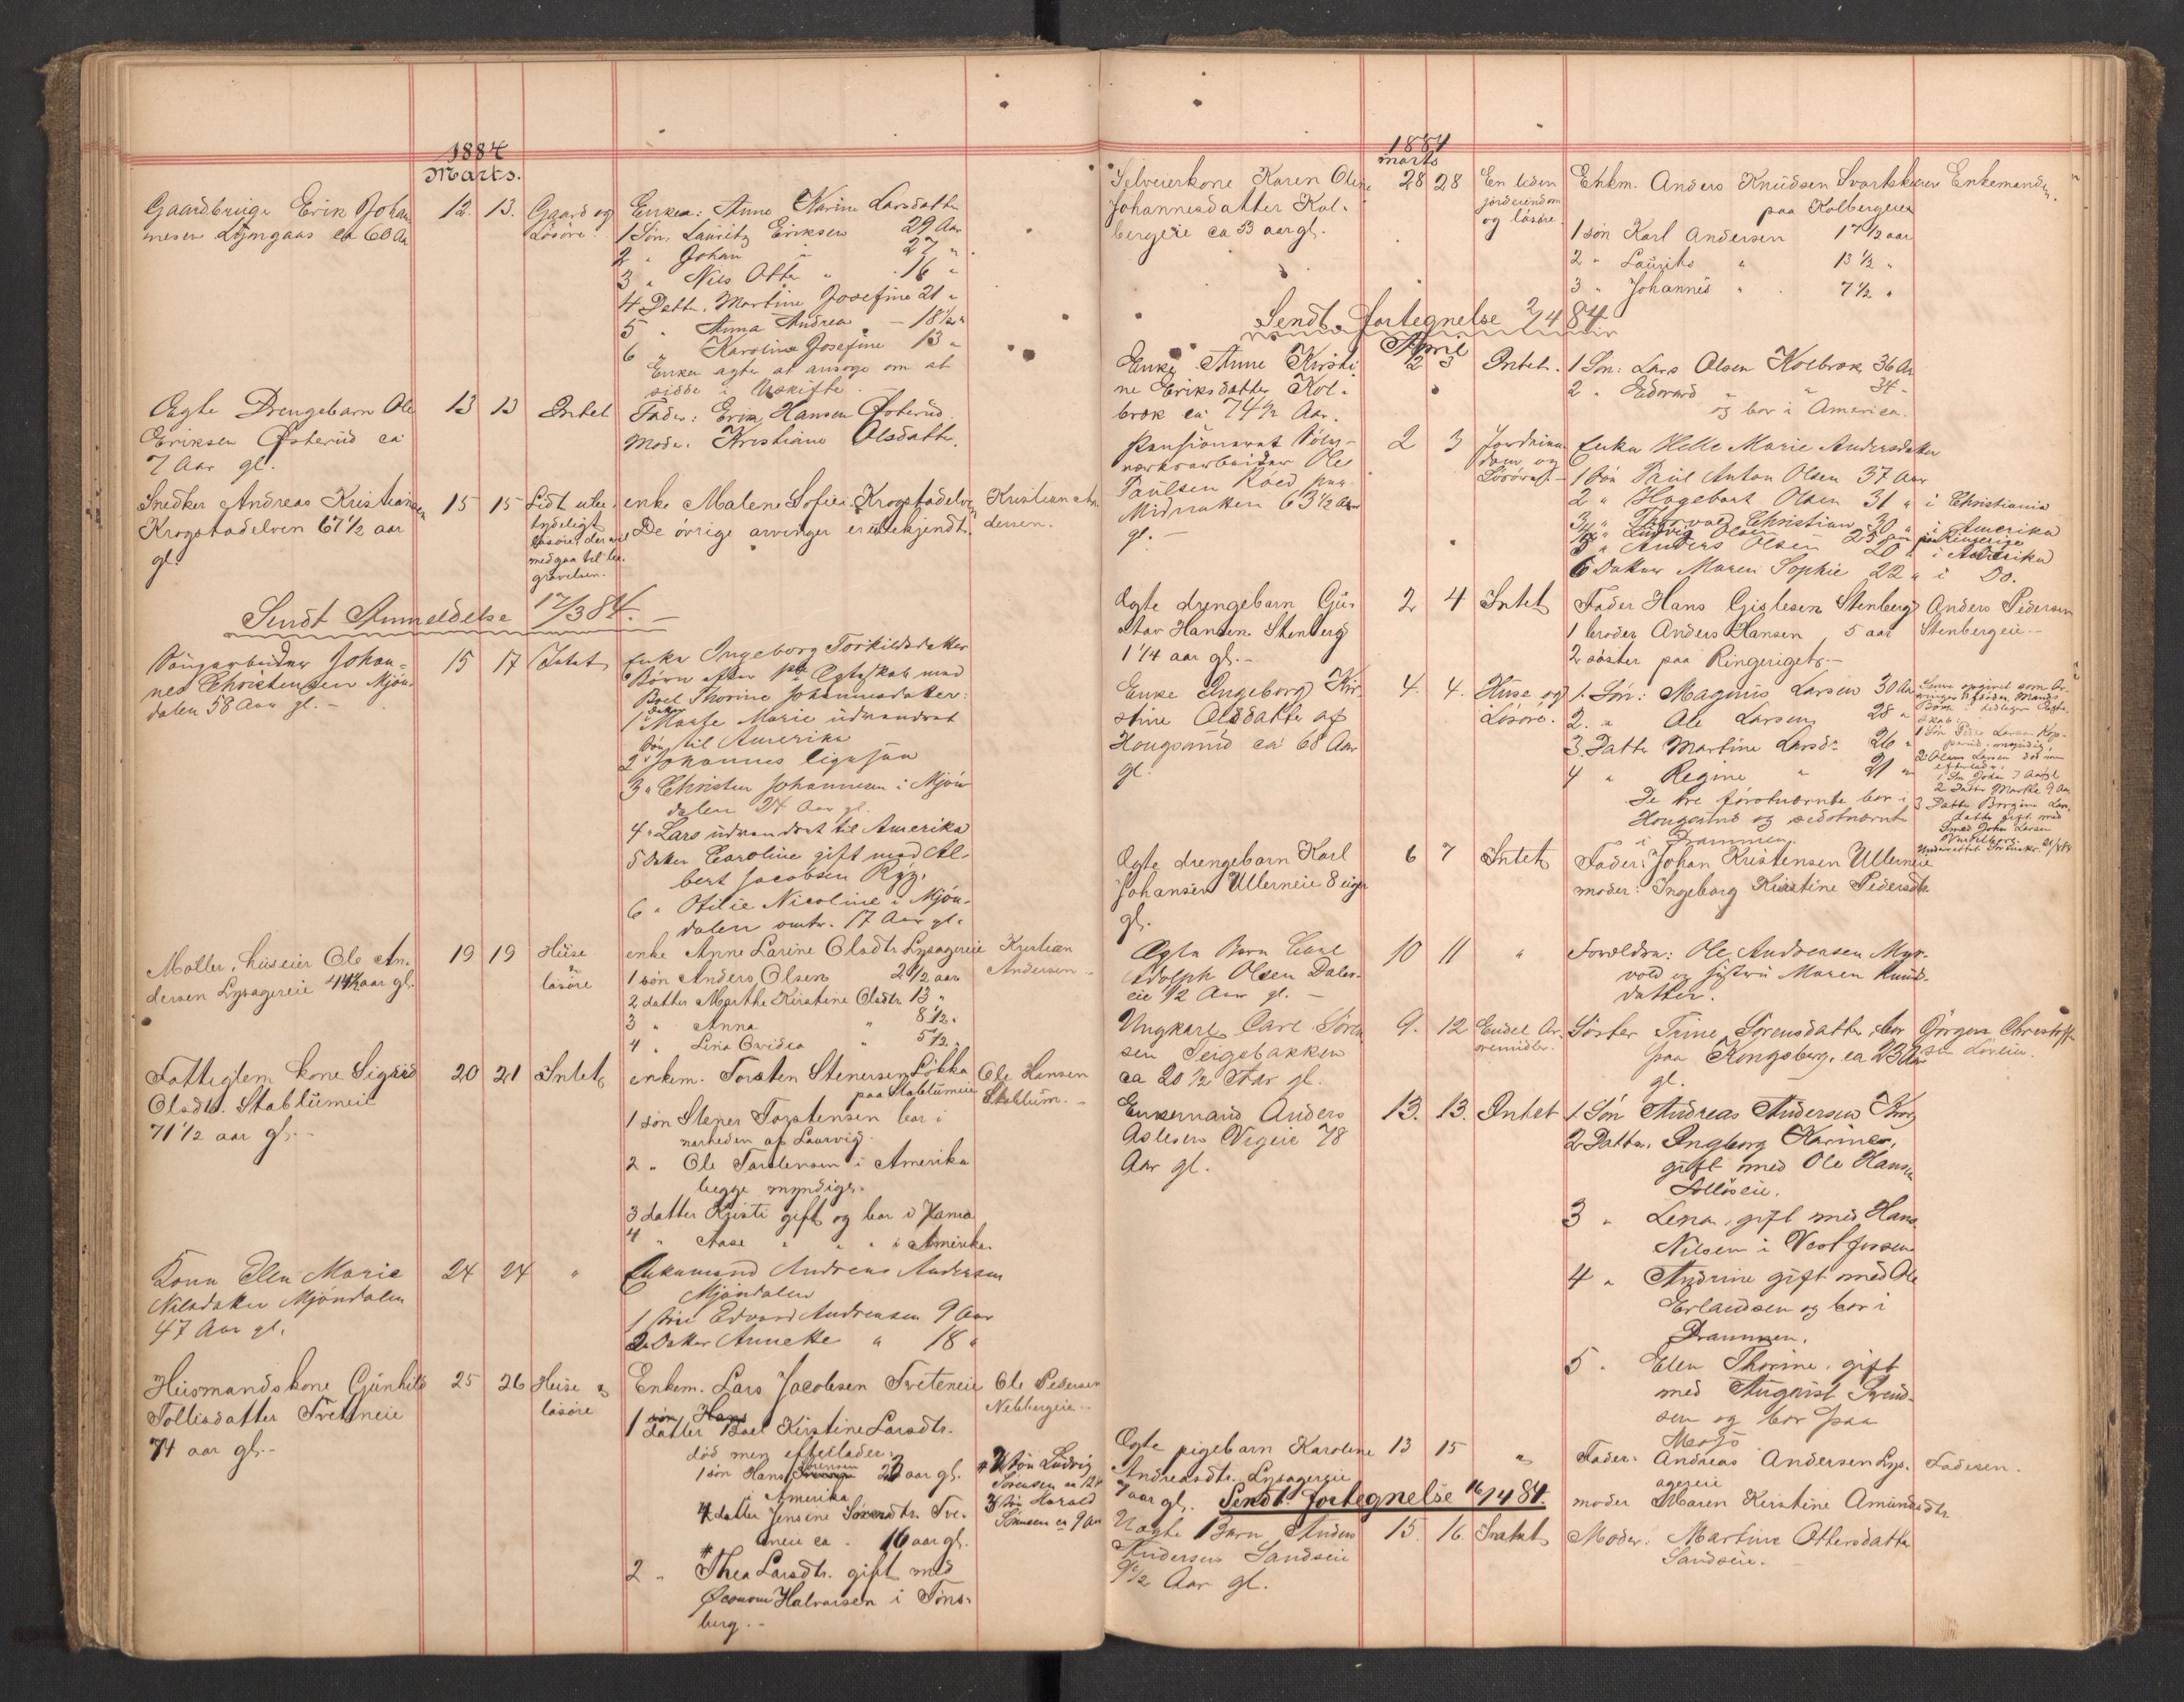 1884
Marts.
Gaardbruger Erik Johan
nesen ca 60 Aar
12. 13. Gaard og
Løsøre.
Enken: Anne Karine Larsdatter
1 Søn, Lauritz Eriksen 29 Aar
2 " Johan " 27 "
3 " Nils Otto " 16 "
4 Datter, Martine Josefine 21 "
5 " Anna Andrea " 18½ "
6 " Karoline Josefine 13 "
Enken agter at ansøge om at
sidde i Uskifte.
Ægte Drengebarn Ole
Eriksen Østerud ca
7 Aar gl.
13 13 Intet
Fader: Erik Hansen Østerud.
Moder: Kristiane Olsdatter.
Snedker Andreas Kristiansen
Krogstadelven 67½ aar
gl.
15 15 Lidt ube-
tydeligt
løsøre, der vil
medgaa til be-
gravelsen.
enke Malene Sofie Krogstadelven
De øvrige arvinger er ubekjendt.
Kristian An-
dersen.
Sendt Anmeldelse 17/3 84.
Johan-
nes Christensen Mjøn-
dalen 58 Aar gl.
15 17 Intet
Enke Ingeborg Torkildsdatter
Børn efter Ægteskab med
Boel Thorine Johannesdatter:
1 Datter Marthe Marie udvandret
til Amerika
2 Søn Johannes ligesaa
3 " Christen Johannesen i Mjøn-
dalen 24 Aar gl.
4 " Lars udvandret til Amerika
5 Datter Caroline gift med Al-
bert Jacobsen Ryg.
6 " Otilie Nicoline i Mjøn-
dalen omtr. 17 Aar gl.
Møller, huseier Ole An-
dersen Lysagereie 44½ aar gl.
19 19 Huse
&
løsøre
enke Anne Larine Olsdtr. Lysagereie
1 søn Anders Olsen 20½ aar
2 datter Marthe Kirstine Olsdtr. 13 "
3 " Anna " 8½ "
4 " Lina " 5½ "
Kristian
Andersen
Fattiglem kone Sigrid
Olsdtr. Stablumeie
71½ aar gl.
20 21 Intet
enkem. Torsten Stenersen Løkka
paa Stablumeie
1 søn Stener Torstensen bor i
nærheden af Laurvig.
2 " Ole Torstensen i Amerika
begge myndige.
3 datter Kristi gift og bor i
4 " Aase " " " i Amerika.
Ole Hansen
Stablum.
Kone Elen Marie
Nilsdatter Mjøndalen
47 Aar gl.
24 24 "
Enkemand Andreas Andersen
Mjøndalen
1 Søn Edvard Andreasen 9 Aar
2 Datter Annette " 18 "
Husmandskone Gunhild
Tollisdatter Tveteneie
74 aar gl.
25 26 Huse &
løsøre
Enkem. Lars Jacobsen Tveteneie
1 datter Boel Kirstine Larsdtr.
død men efterlader:
1 søn Hans Sørensen 23 aar gl.
i Amerika
4 datter Jensine Sørensdtr. Tve-
teneie ca 16 aar gl.
2 " Thea Larsdtr. gift med
Øconom Halvorsen i Tøns-
berg.
Ole Pedersen
Nebbergeie
# 2 Søn Ludvig
Sørensen ca 12 "
3 Søn Harald
Sørensen ca 9 Aar
1884
marts
Selveierkone Karen Oline
Johannesdatter Kol-
bergeie ca 53 aar gl.
28 28 En liden
jordeiendom
og løsøre
Enkm. Anders Knudsen Svartskuren
paa Kolbergeie
1 søn Karl Andersen 17½ aar
2 " Laurits " 13½ "
3 " Johannes " 7½ "
Enkemanden.
Sendt fortegnelse 2/4 84
April
Enke Anne Kirsti-
ne Eriksdatter Kol-
brok ca 74½ Aar.
2 3 Intet.
1 Søn: Lars Olsen Kolbrok 36 Aar
2 " Edvard " 34 "
og bor i America.
Pensioneret Sølv-
værksarbeider Ole
Paulsen Røed paa
Midnatten 63½ Aar
gl.
2 3 Jordeien-
dom og
Løsøre
Enke Helle Marie Andersdatter
1 Søn Paul Anton Olsen 37 Aar
2 " Hagebart Olsen 31 " i Christiania
3 " Thorvald Christian 30 " i Amerika
4 " Ludvig Olsen 25 " paa Ringerige
5 " Anders Olsen 20 " i Amerika
6 Datter Maren Sophie 22 " i Do.
Ægte drengebarn Gu-
stav Hansen Stenberg
1¼ aar gl.
2 4 Intet
Fader Hans Gislesen Stenberg
1 broder Anders Hansen 5 aar
2 søster paa Ringeriget.
Anders Pedersen
Stenbergeie.
Enke Ingeborg Kir-
stine Olsdatter af
Hougsund ca 68 Aar
gl.
4. 4. Huse og
Løsøre.
1. Søn: Magnus Larsen 30 Aar
2. " Ole Larsen 28 "
3. Datter Martine Larsdr. 26 "
4 " Regine " 21 "
De tre førstnævnte bor i
Hougsund og sidstnævnte
i Drammen.
1 Søn Peder Larsen
myndig
2 Olaus Larsen død men
efterlader:
1 Søn Johan 7 Aar gl
2 Datter Marthe 9 Aar
3 Datter Bergine Lars-
datter gift med
Smed John Larsen
Ægte drengebarn Karl
Johansen Ullerneie 8 uger
gl.
6 7 Intet
Fader: Johan Kristensen Ullerneie
moder: Ingeborg Kirstine Pedersdtr.
Ægte Barn Carl
Adolph Olsen Dalers-
eie ½ Aar gl.
10 11 "
Forældre: Ole Andreasen Myr-
vold og hustru Maren Knuds-
datter.
Ungkarl Carl Søren-
sen Teigsbakken
ca 20½ Aar gl.
9. 12 Endel Ar-
vemidler.
Søster Trine Sørensdatter, bor
paa Kongsberg, ca 23 Aar
gl.
Jørgen Christoffer-
sen
Enkemand Anders
Aslesen Vegeie 78
Aar gl.
13. 13. Intet
1 Søn Andreas Andersen
2 Datter, Ingborg Karine,
gift med Ole Hansen
3 " Lena, gift med Hans
Nilsen i Vestfossen
4 " Andrine gift med Ole
Erlandsen og bor i
Drammen.
5 " Elen Thorine, gift
med August Svend-
sen og bor paa
Ægte pigebarn Karoline
Andreasdtr. Lysagereie
7 aar gl.
13 15 "
Fader: Andreas Andersen Lys-
agereie
moder Maren Kirstine Amundsdtr.
Faderen.
Sendt fortegnelse 16/4 84.
Uægte Barn Anders
Andersen Sandseie
9½ Aar gl.
15. 16. Intet
Moder: Martine Ottersdatter
Sandseie.